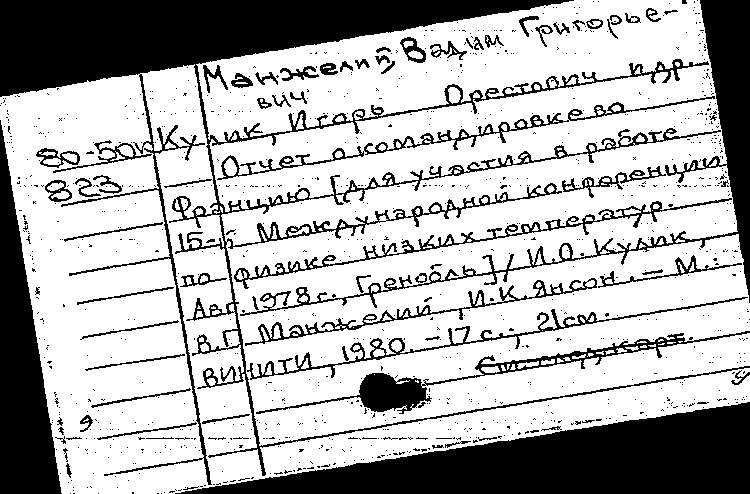 Манжелий, Вадим Григорье-
вич
80-50к Кулик, Игорь Орестович и др.
823 Отчет о командировке во
Францию [для участия в работе
15-й Международной конференции
по физике низких температур.
Авг. 1978 г., Гренобль] / И.О. Кулик,
В.Г. Манжелий, И.К. Янсон. — М.:
ВИНИТИ, 1980. — 17 с.; 21 см.
См. след. карт.